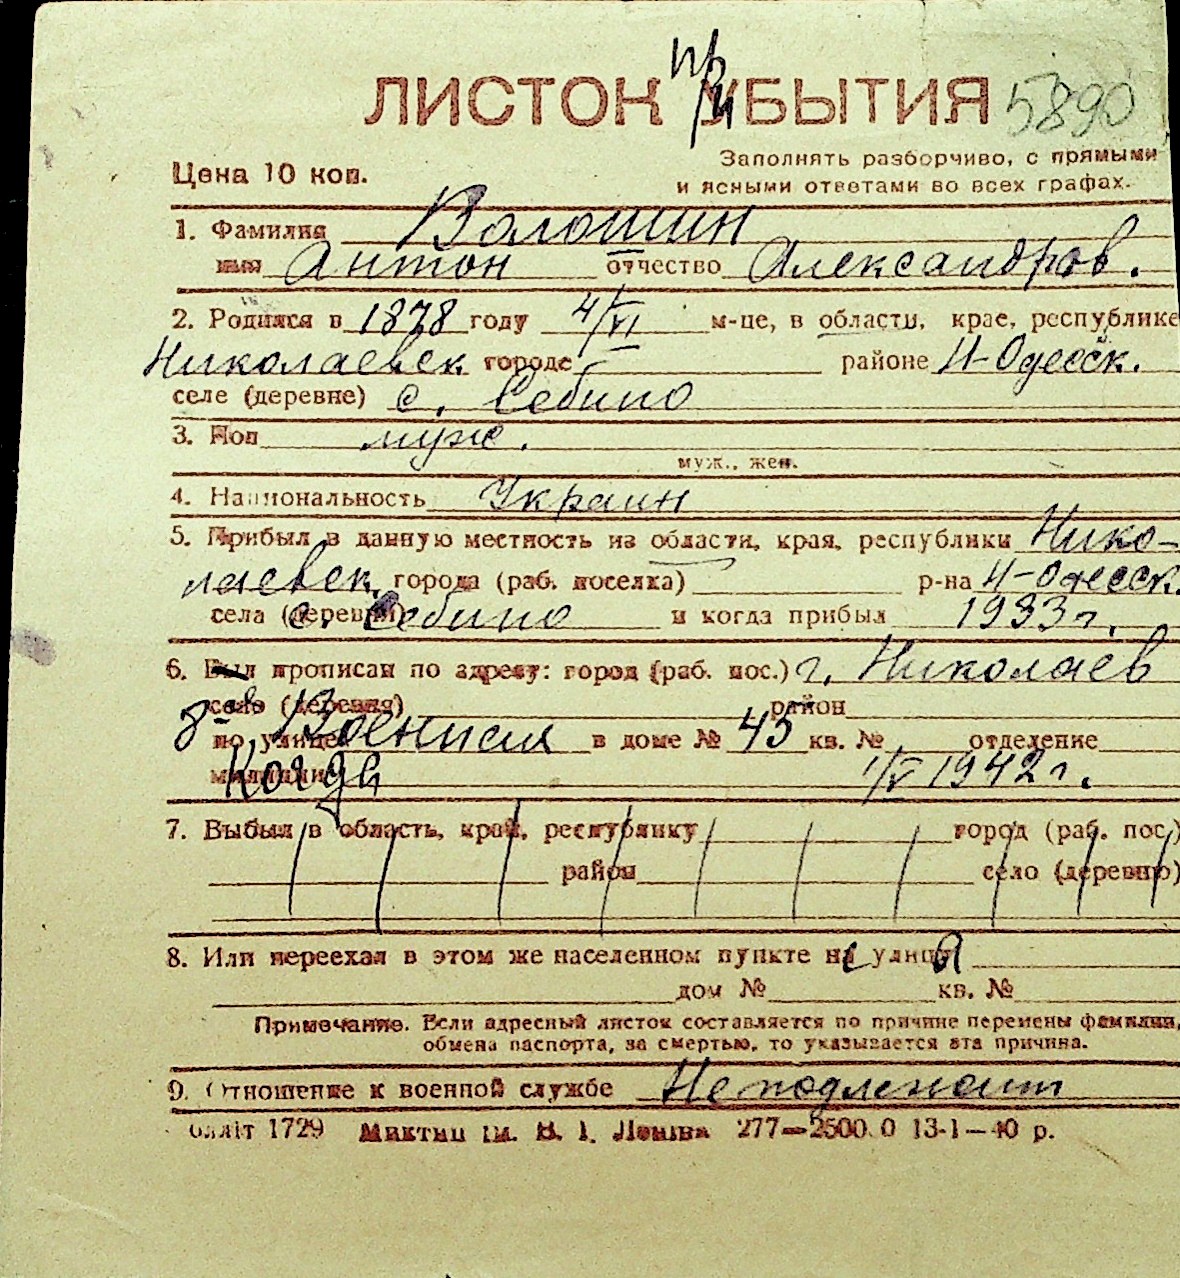 ЛИСТОК при УБЫТИЯ 5890
Цена 10 коп.
Заполнять разборчиво, с прямыми
и ясными ответами во всех графах.
1. Фамилия Волошин
имя Антон отчество Александров.
2. Родился в 1878 году 4/VI м-це, в области, крае, республике
Николаевск. городе – районе Н-Одесск.
селе (деревне) с. Себино
3. Пол муж.
муж., жен.
4. Национальность Украин
5. Прибыл в данную местность из области, края, республики Нико-
лаевск. города (раб. поселка) р-на Н-Одесск.
села (деревни) с. Себино и когда прибыл 1933 г.
6. Был прописан по адресу: город (раб. пос.) г. Николаев
село (деревня) район
по улице 8-ая Военная в доме № 45 кв. № отделение
милиции Когда 1/V 1942 г.
7. Выбыл в область, край, республику город (раб. пос.)
район село (деревню)
8. Или переехал в этом же населенном пункте на улицу
дом № кв. №
Примечание. Если адресный листок составляется по причине перемены фамилии,
обмена паспорта, за смертью, то указывается эта причина.
9. Отношение к военной службе Не подлежит
1729 ім. В. І. Леніна 277—2500.0 13-1—40 р.